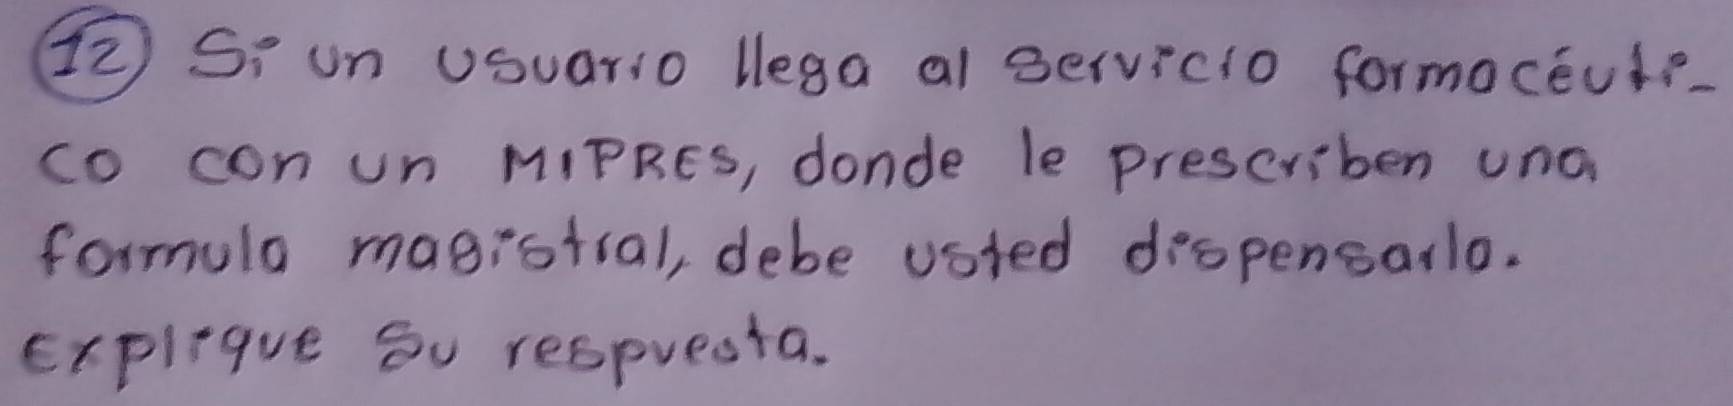 12 Si un usuario llega al servicio farmacéuti-
co con un MIPRES, donde le prescriben una
formula magistral, debe usted dispensarlo.
Explique su respuesta.